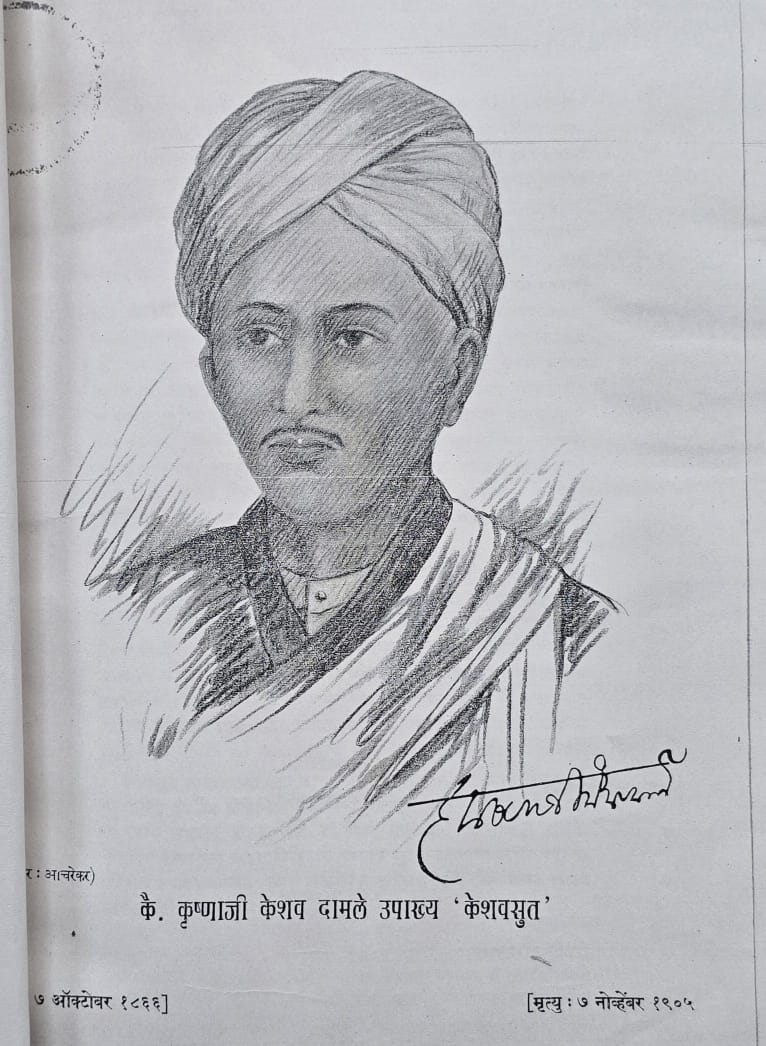 र : आचरेकर)
कै. कृष्णाजी केशव दामले उपाख्य ‘केशवसुत’
७ ऑक्टोबर १८६६]
[मृत्यु : ७ नोव्हेंबर १९०५